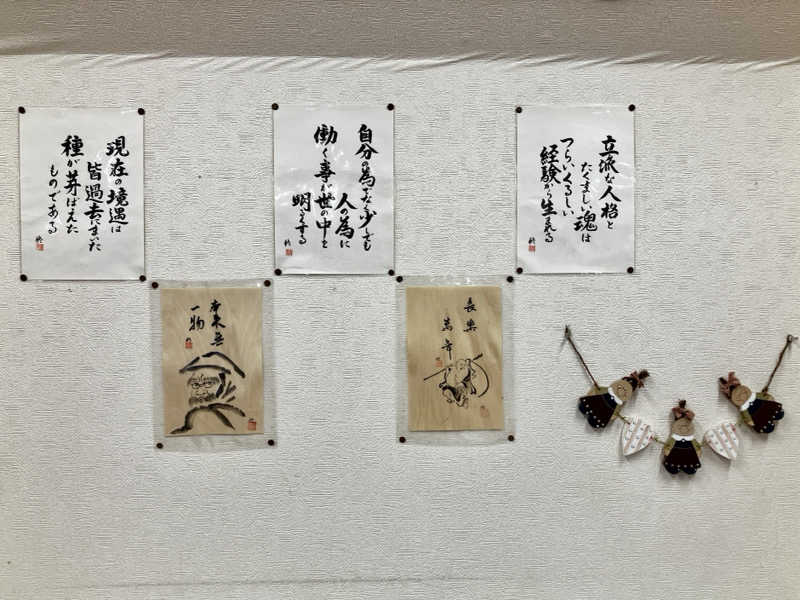 立派な人格と
たくましい魂は
つらいくるしい
経験から生れる
自分の為でなく少しでも
人の為に
働く事が世の中を
明るくする
現在の境遇は
皆過去にまいた
種が芽ばえた
ものである
長楽
萬年
本来無
一物